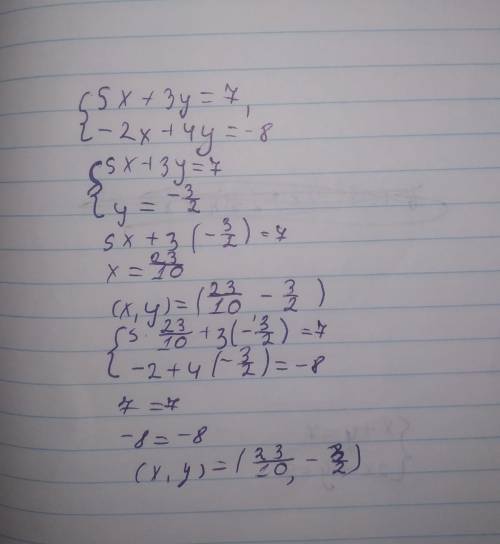 {5x + 3y = 7,
{-2x + 4y = -8
{5x + 3y = 7
{y = -3/2
5x + 3 (-3/2) = 7
x = 23/10
(x, y) = (23/10 - 3/2)
{5 · 23/10 + 3(-3/2) = 7
{-2 + 4 (-3/2) = -8
7 = 7
-8 = -8
(x, y) = (23/10, -3/2)